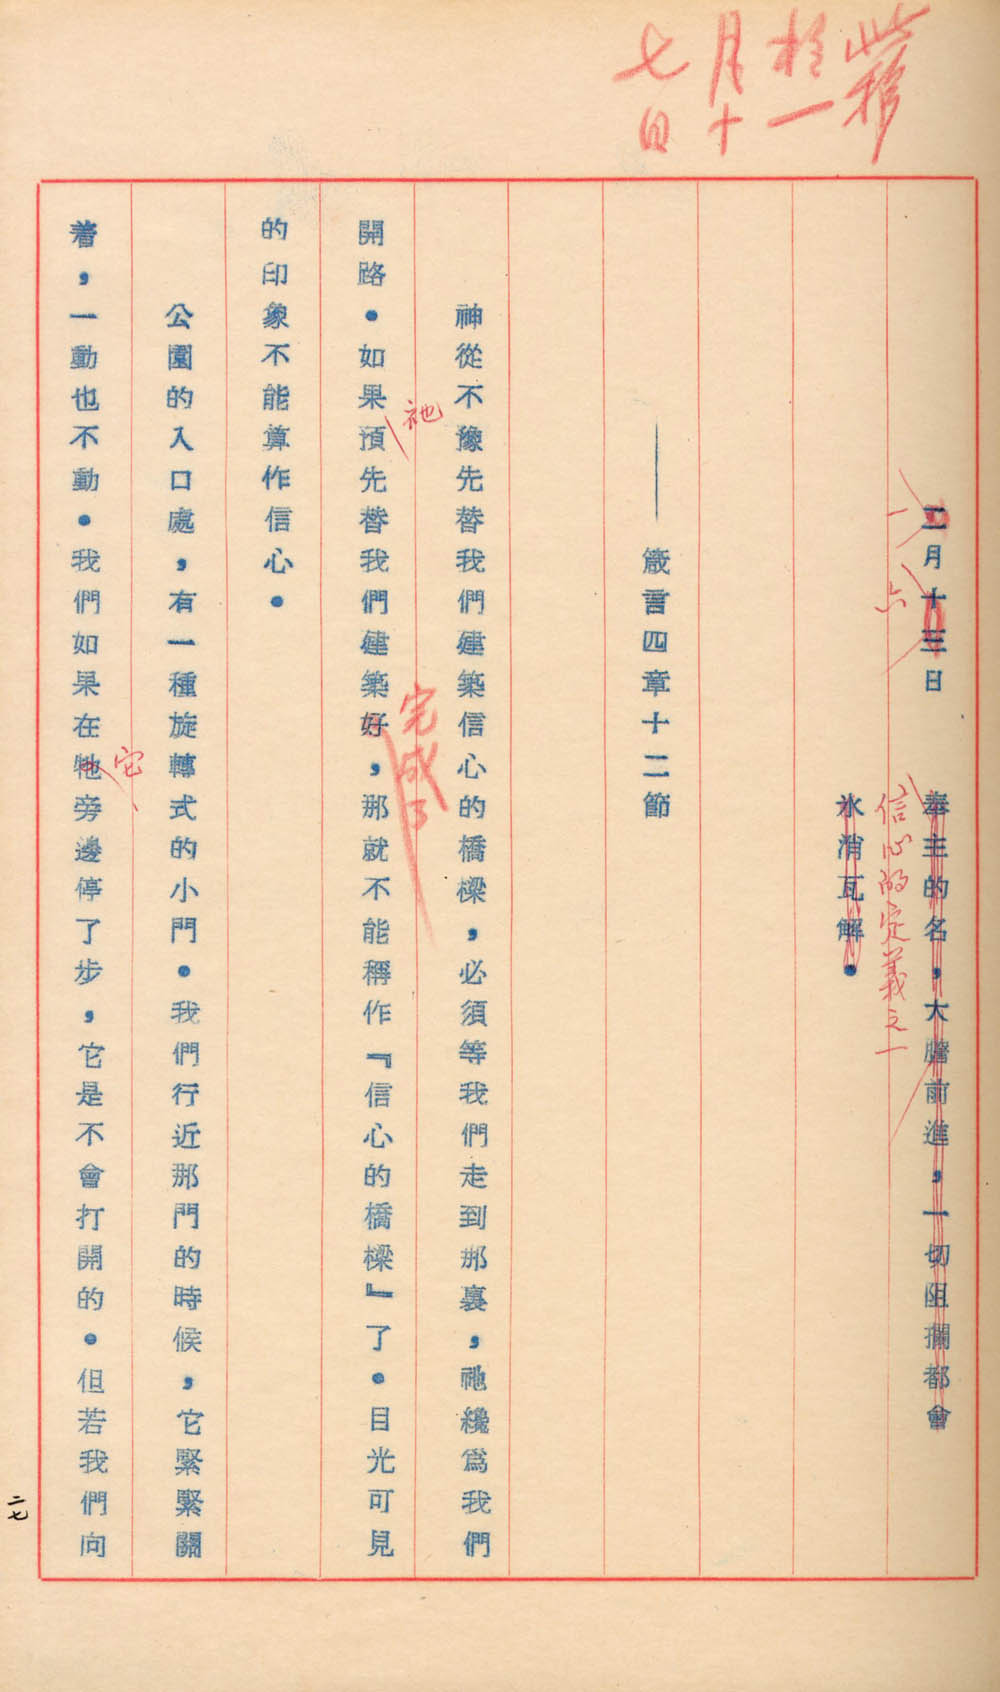 此移
於一
月十
七日
二月十三日
奉主的名，大膽前進，一切阻攔都會
一
六
信心的定義之一
氷消瓦解。
——箴言四章十二節
神從不豫先替我們建築信心的橋樑，必須等我們走到那裏，祂纔爲我們
祂
完成了
開路。如果預先替我們建築好，那就不能稱作『信心的橋樑』了。目光可見
的印象不能算作信心。
公園的入口處，有一種旋轉式的小門。我們行近那門的時候，它緊緊關
它
着，一動也不動。我們如果在牠旁邊停了步，它是不會打開的。但若我們向
二七